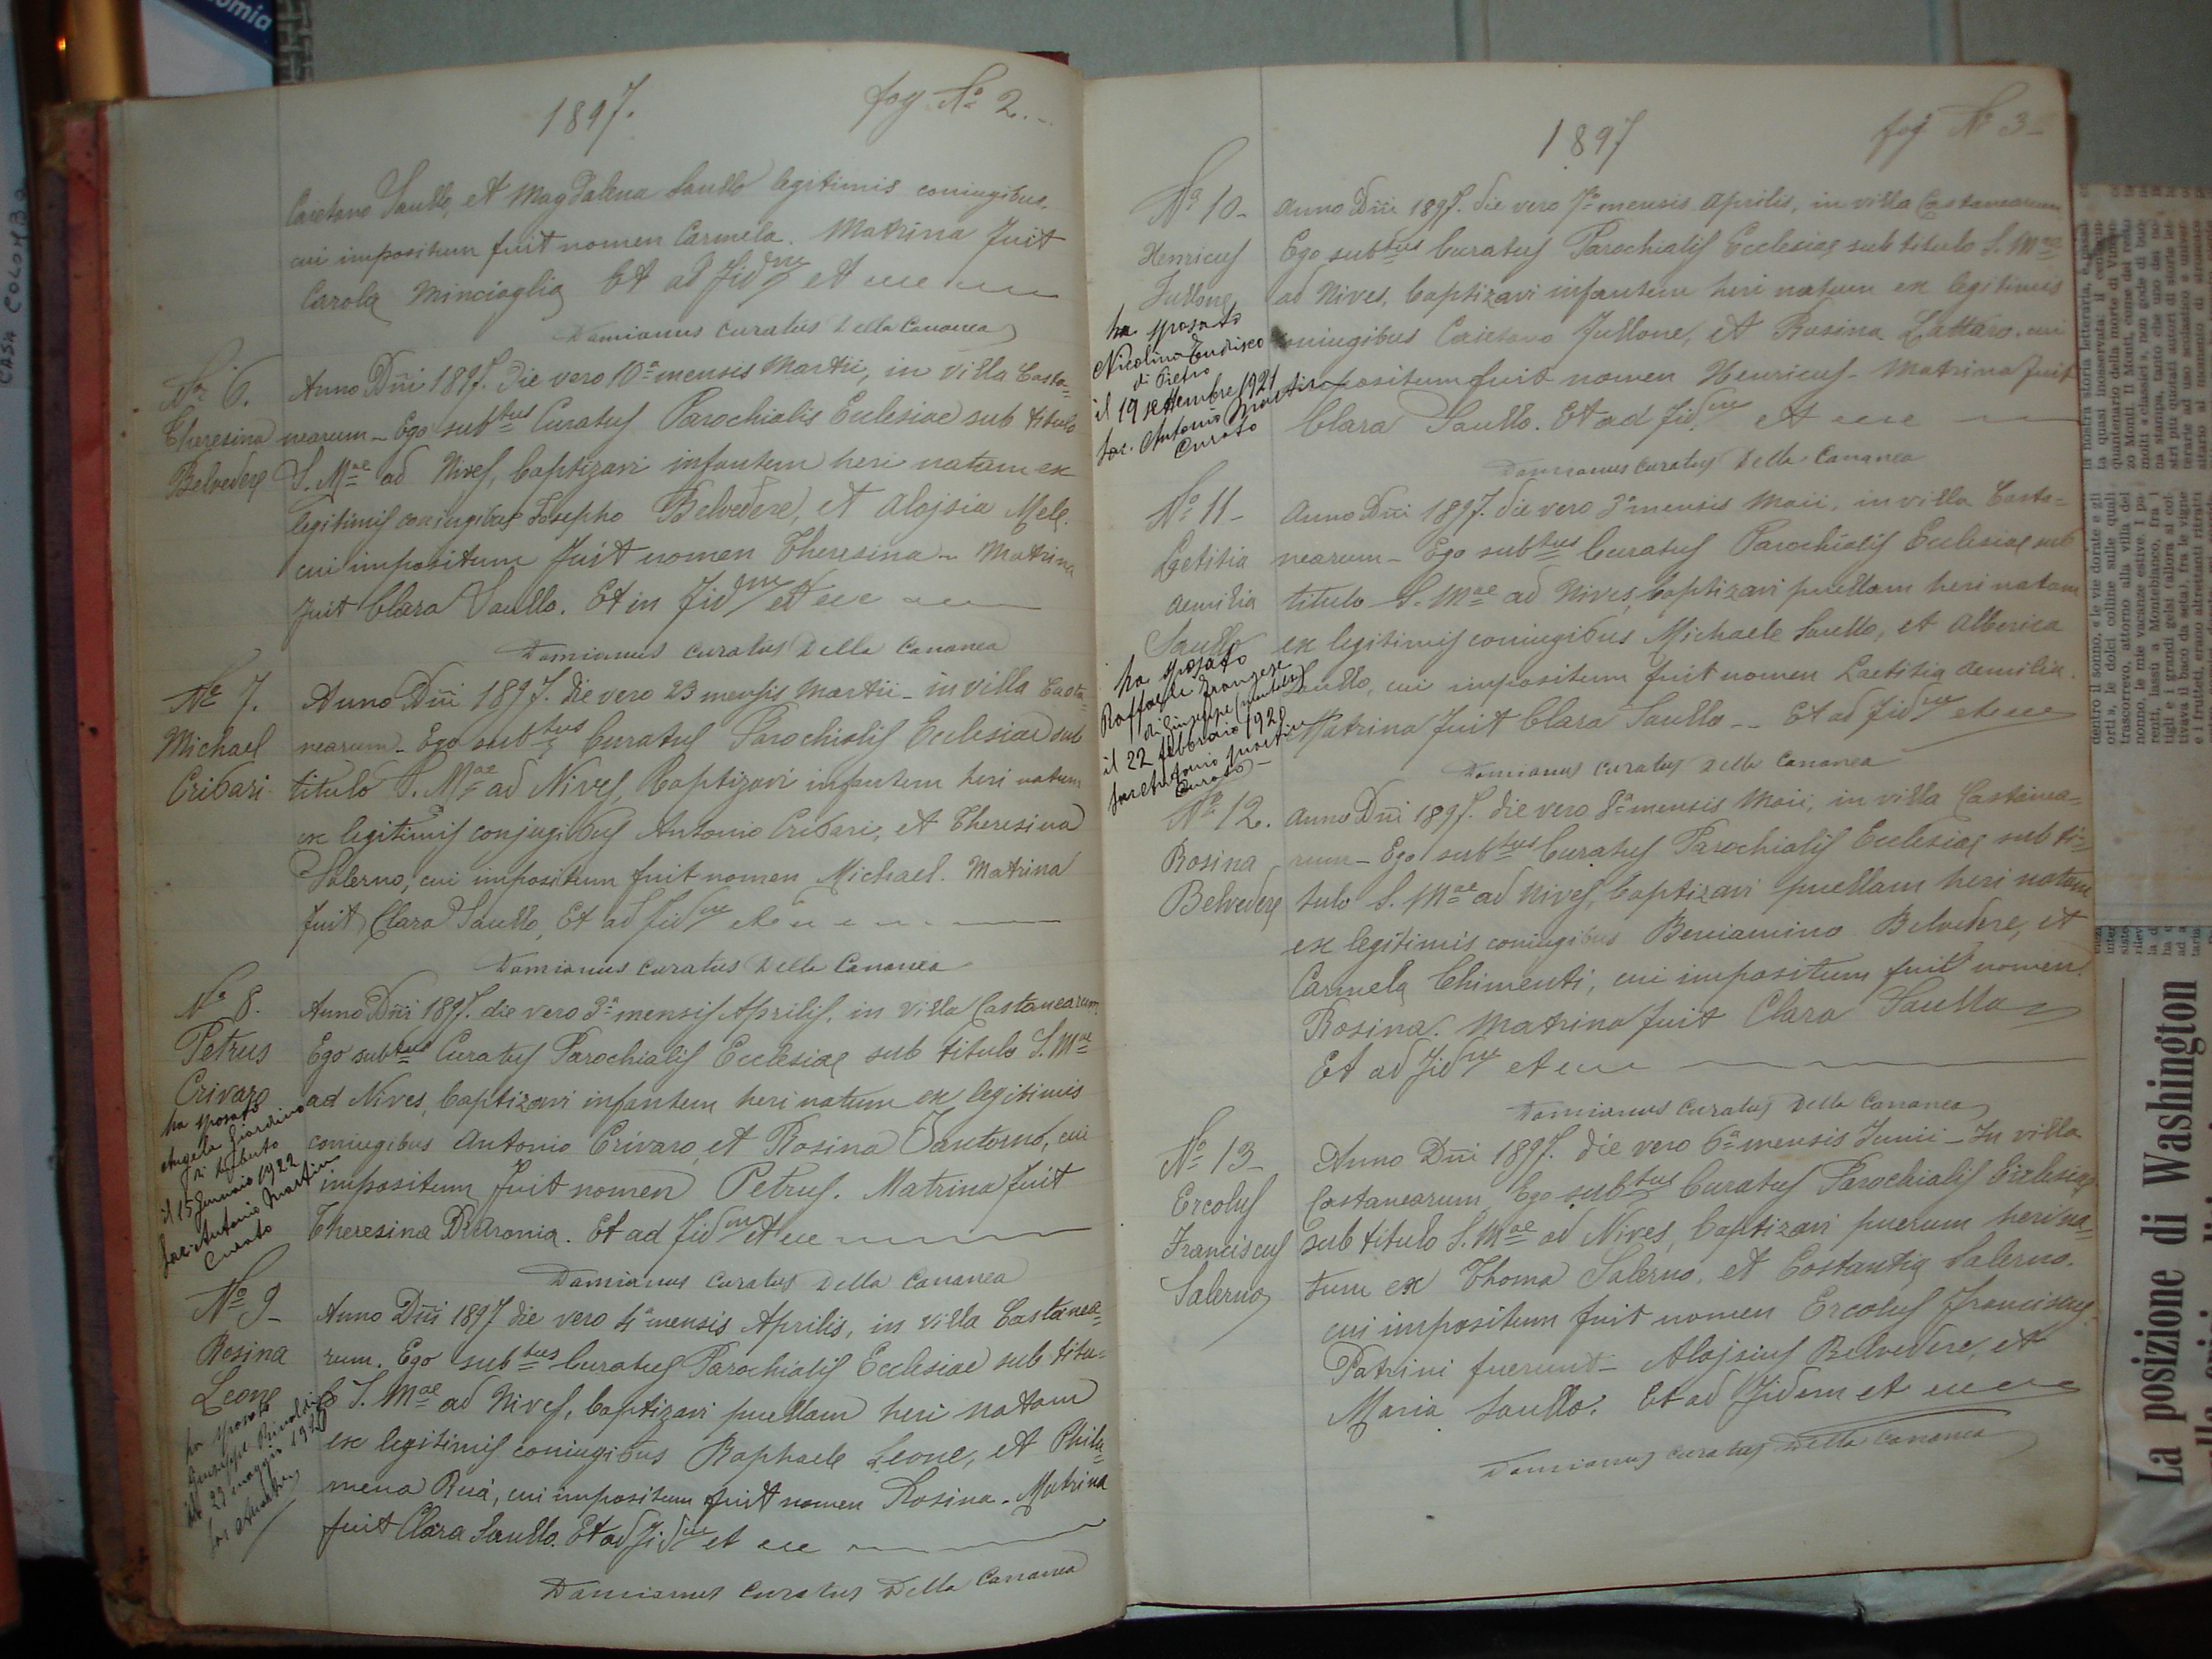 1897.
fog Nº 2.
Caietano Saullo, et Magdalena Saullo legitimis coniugibus,
cui impositum fuit nomen Carmela. Matrina fuit
Carola Minciaglia Et ad fidm et
Damianus curatus Della Cananea
Nº 6.
Theresina
Belvedere
Anno Dñi 1897. die vero 10ª mensis Martii, in villa Casta=
nearum - Ego subtus Curatus Parochialis Ecclesiae sub titulo
S. Mae ad Nives, baptizavi infantem heri natam ex
legitimis coniugibus Josepho Belvedere, et Alojsia Mele.
cui impositum fuit nomen Theresina - Matrina
fuit Clara Saullo. Et in fidm et
Damianus curatus Della Cananea
Nº 7.
Michael
Cribari
Anno Dñi 1897. die vero 23 mensis Martii - in villa Casta=
nearum - Ego subtus Curatus Parochialis Ecclesiae sub
titulo S. Mae ad Nives, baptizavi infantem heri natum
ex legitimis conjugibus Antonio Cribari, et Theresina
Salerno, cui impositum fuit nomen Michael. Matrina
fuit Clara Saullo, Et ad fidm
Damianus curatus Della Cananea
Nº 8.
Petrus
Crivaro
ha sposato
Angela Giardino
il 15 Gennaio 1922
Sac. Antonio Martire
Curato
Anno Dñi 1897. die vero 3ª mensis Aprilis, in villa Castanearum.
Ego subtus Curatus Parochialis Ecclesiae sub titulo S. Mae
ad Nives, baptizavi infantem heri natum ex legitimis
coniugibus Antonio Crivaro, et Rosina Santorno, cui
impositum fuit nomen Petrus. Matrina fuit
Theresina. Et ad fidm et
Damianus curatus Della Cananea
Nº 9-
Rosina
Leone
ha sposato
Giuseppe Rinaldi
il 23 maggio 1920
Anno Dñi 1897 die vero 4ª mensis Aprilis, in villa Castanea=
rum. Ego subtus Curatus Parochialis Ecclesiae sub titu=
lo S. Mae ad Nives, baptizavi puellam heri natam
ex legitimis coniugibus Raphaele Leone, et Philu=
mena Ruá, cui impositum fuit nomen Rosina. Matrina
fuit Clara Saullo. Et ad fidm et
Damianus curatus Della Cananea
1897
fog Nº 3-
Nº 10-
Henricus
Jullone
ha sposato
Nicolina Tudisco
di Pietro
il 19 settembre 1921
Sac. Antonio Martire
Curato
Anno Dñi 1897. die vero 7ª mensis Aprilis, in villa Castanearum
Ego subtus Curatus Parochialis Ecclesiae sub titulo S. Mae
ad Nives, baptizavi infantem heri natum ex legitimis
coniugibus Caietano Jullone, et Rosina Lattaro. cui
impositum fuit nomen Henricus - Matrina fuit
Clara Saullo. Et ad fidm et
Damianus curatus Della Cananea
Nº 11-
Laetitia
Aemilia
Saullo
ha sposato
Raffaele Franzese
di Giuseppe
il 22 febbraio 1920
Sac. Antonio Martire
Curato
Anno Dñi 1897. die vero 3ª mensis Maii, in villa Casta=
nearum - Ego subtus Curatus Parochialis Ecclesiae sub
titulo S. Mae ad Nives, baptizavi puellam heri natam
ex legitimis coniugibus Michaele Saullo, et Alberica
Saullo, cui impositum fuit nomen Laetitia Aemilia.
Matrina fuit Clara Saullo - - Et ad fidm et
Damianus curatus Della Cananea
Nº 12.
Rosina
Belvedere
Anno Dñi 1897. die vero 8ª mensis Maii, in villa Castanea=
rum - Ego subtus Curatus Parochialis Ecclesiae sub ti=
tulo S. Mae ad Nives, baptizavi puellam heri natam
ex legitimis coniugibus Beniamino Belvedere, et
Carmela Chimenti, cui impositum fuit nomen
Rosina. Matrina fuit Clara Saullo
Et ad fidm et
Damianus curatus Della Cananea
Nº 13-
Ercolus
Franciscus
Salerno
Anno Dñi 1897. die vero 6ª mensis Junii - In villa
Castanearum, Ego subtus Curatus Parochialis Ecclesiae
sub titulo S. Mae ad Nives, baptizavi puerum heri na=
tum ex Thoma Salerno, et Costantia Salerno.
cui impositum fuit nomen Ercolus Franciscus.
Patrini fuerunt - Alojsius Belvedere, et
Maria Saullo. Et ad fidem et
Damianus curatus Della Cananea
La posizione di Washington
CASA COLOMBO